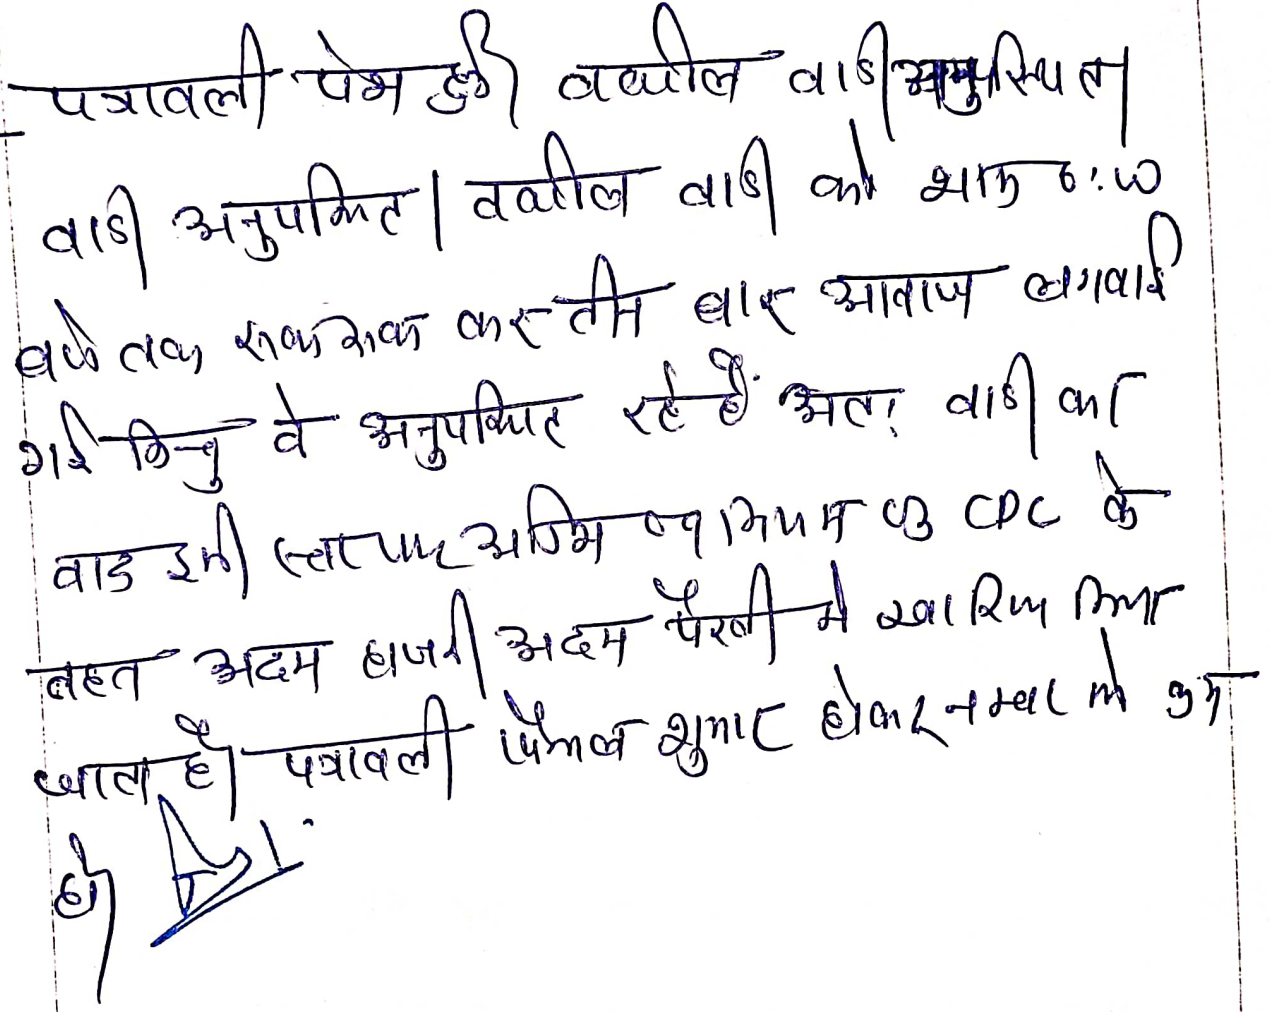 पत्रावली पेश हुई। वकील वादी अनुपस्थित।
वादी अनुपस्थित। वकील वादी को शाम 6:00
बजे तक रूक रूक कर तीन बार आवाज लगवाई
गई किन्तु वे अनुपस्थित रहे हैं अतः वादी का
वाद इसी स्तर पर नियम CPC के
तहत अदम हाजरी अदम पैरवी में खारिज किया
जाता है। पत्रावली फैसल शुमार होकर नम्बर से कम
हो।